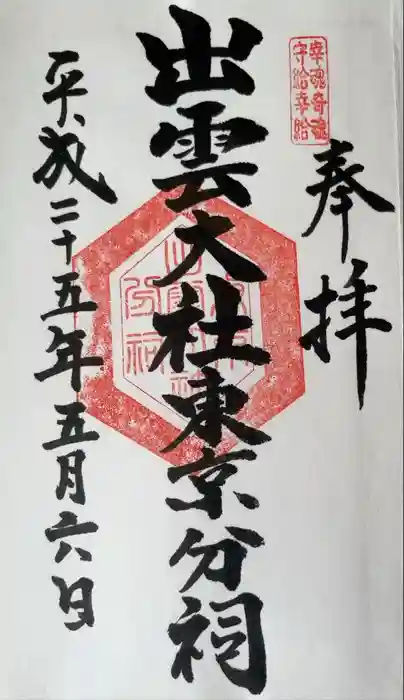 奉拝
幸魂奇魂
守給幸給
出雲大社東京分祠
平成二十五年五月六日